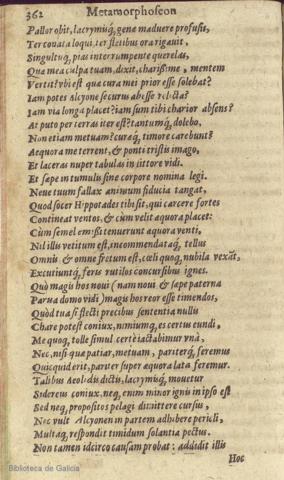 362 Metamorphoseon
Pallor obit, lacrymisq́; genæ maduere profusis,
Ter conata loqui, ter fletibus ora rigauit,
Singultuq́; pias interrumpente querelas,
Quæ mea culpa tuam, dixit, charissime, mentem
Vertit? vbi est quæ cura mei prior esse solebat?
Iam potes alcyone securus abesse relicta?
Iam via longa placet? iam sum tibi charior absens?
At puto per terras iter est? tantumq́; dolebo,
Non etiam metuam? curæq́; timore carebunt?
Aequora me terrent, & ponti tristis imago,
Et laceras nuper tabulas in littore vidi.
Et sæpe in tumulis sine corpore nomina legi.
Neue tuum fallax animum fiducia tangat,
Quod socer Hippotades tibi sit, qui carcere fortes
Contineat ventos, & cùm velit æquora placet:
Cùm semel emissi tenuerunt æquora venti,
Nil illis vetitum est, incommendataq́; tellus
Omnis & omne fretum est, cœli quoq; nubila vexāt,
Excutiuntq́; feris rutilos concursibus ignes.
Quò magis hos noui (nam noui & sæpe paterna
Parua domo vidi) magis hos reor esse timendos,
Quòd tua si flecti precibus sententia nullis
Chare potest coniux, nimiumq́; es certus eundi,
Me quoq; tolle simul certè iactabimur vnà,
Nec, nisi quæ patiar, metuam, pariterq́; feremus
Quicquid erit, pariter super æquora lata feremur.
Talibus Aeolidis dictis, lacrymisq́; mouetur
Sidereus coniux, neq; enim minor ignis in ipso est
Sed neq; propositos pelagi dimittere cursus,
Nec vult Alcyonen in partem adhibere pericli,
Multaq́; respondit timidum solantia pectus.
Non tamen idcirco causam probat: addidit illis
Hoc
Biblioteca de Galicia